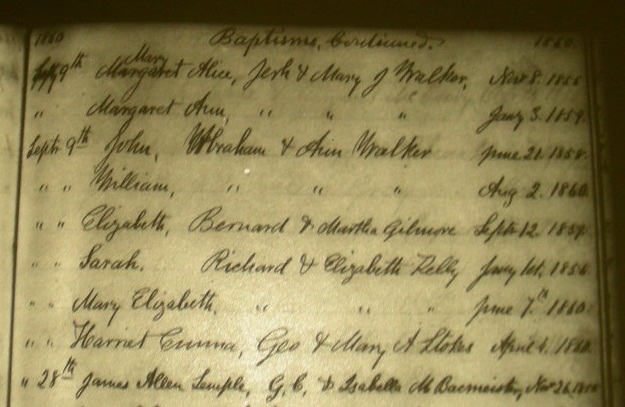 1860 Baptisms, Continued. 1860
Septr 9th Mary Margaret Alice, Jerh & Mary J Walker, Novr 8. 1856
" Margaret Ann, " " " Jany 3. 1859.
Septr 9th John, Abraham & Ann Walker June 21. 1858.
" " William, " " " Aug 2. 1860.
" " Elizabeth, Bernard & Martha Gilmore Septr 12. 1859.
" " Sarah. Richard & Elizabeth Kelly Jany 1st, 1856
" " Mary Elizabeth, " " " June 7th 1860.
" " Harriet Emma, Geo & Mary A Stokes April 4. 1860.
" 28th James Allen Semple, G, C, & Isabella M Bacmeister, Novr 26.